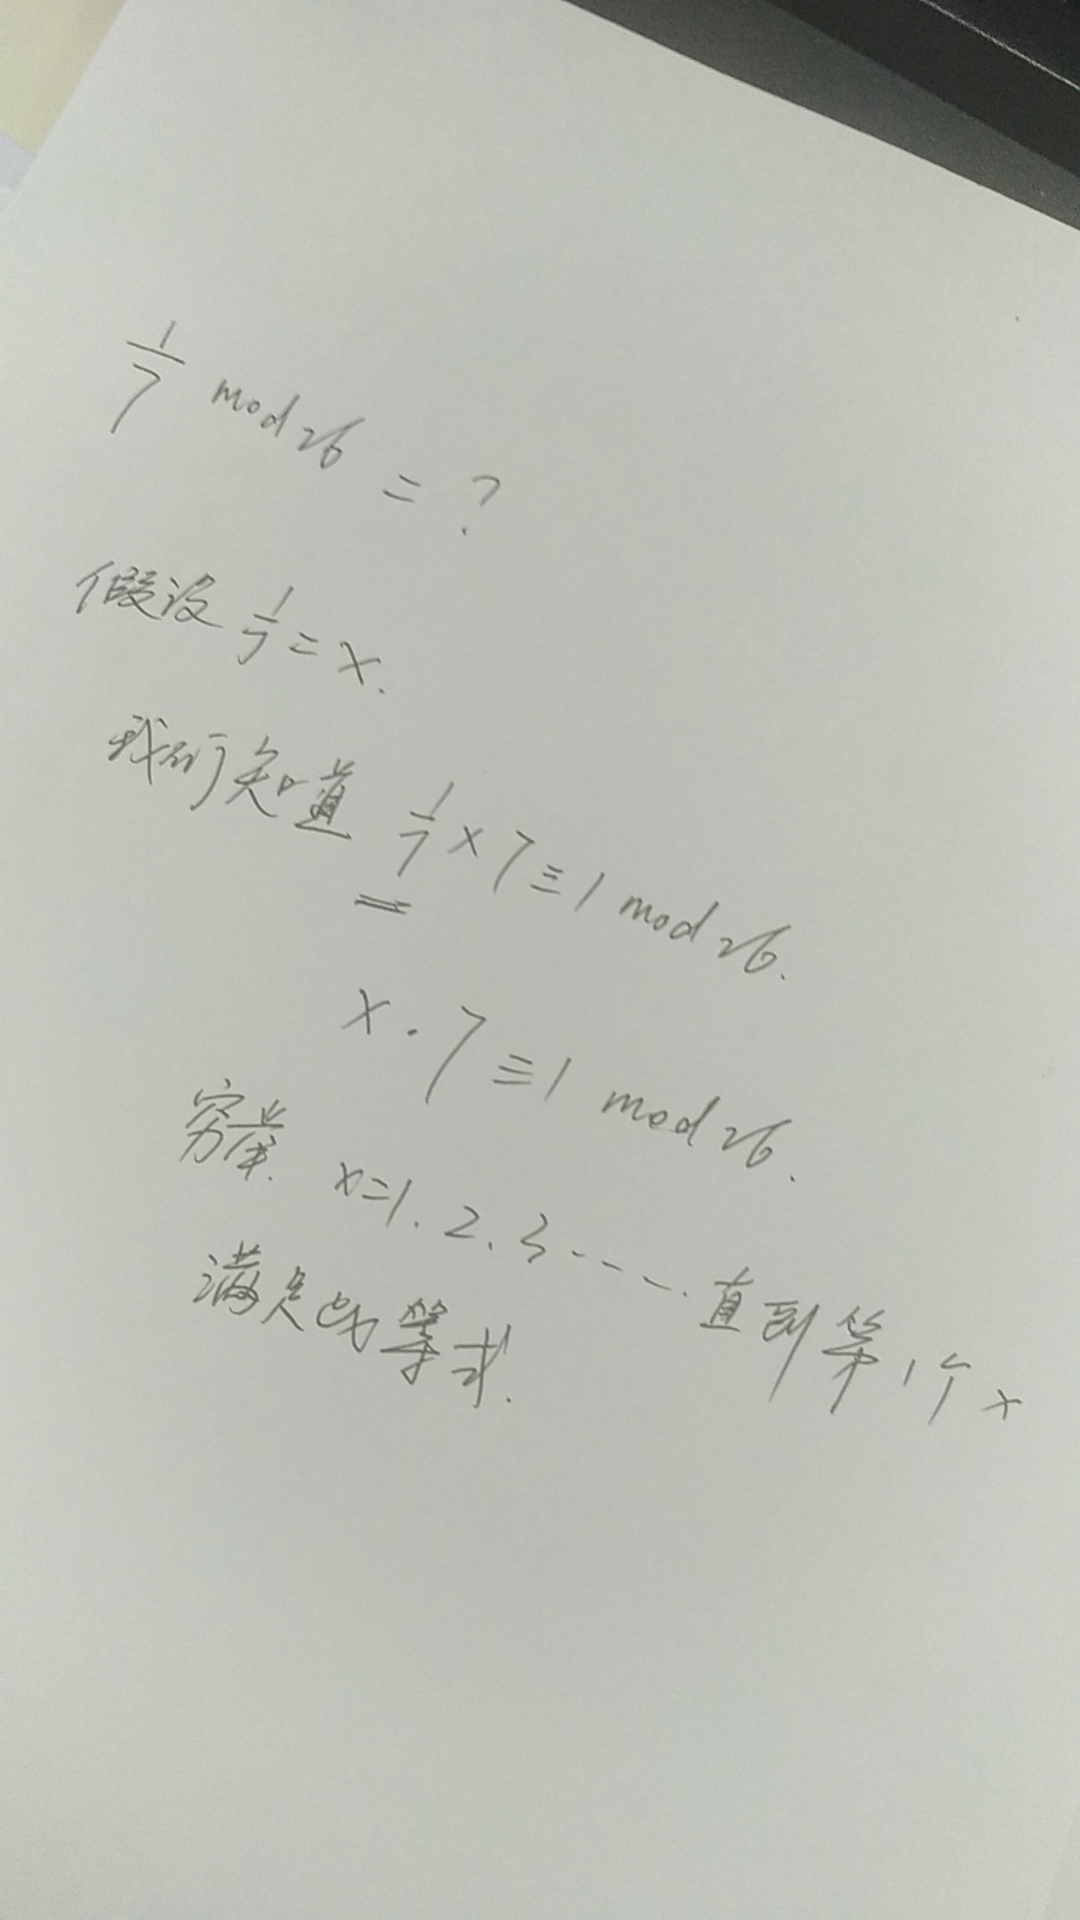 1/7 mod 26 = ?
假设 1/7 = x.
我们知道 1/7 × 7 ≡ 1 mod 26.
x · 7 ≡ 1 mod 26.
穷举. x=1. 2. 3 ---- 直到第1个x
满足此等式.